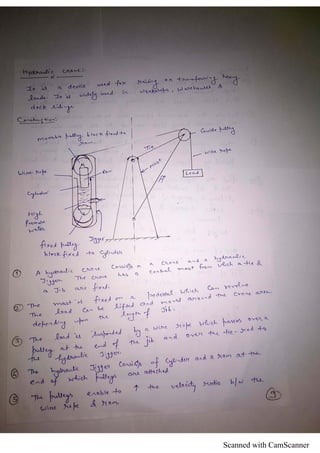 Hydraulic Crane:
It is a device used for raising or transferring heavy
loads. It is widely used in workshops, warehouses &
dock sidings.
Construction:
movable pulley block fixed to
ram
Guide pulley
Tie
wire rope
Wire Rope
Ram
mast
Jib
Load
Cylinder
High
Pressure
water
Jigger
fixed pulley
block fixed to Cylinder
① A hydraulic crane consists of a crane and a hydraulic
Jigger. The crane has a central mast from which a tie &
a Jib are fixed.
② The mast is fixed on a pedestal which can revolve
The load can be lifted and moved around the crane area
depending upon the length of Jib.
③ The load is suspended by a wire rope which passes over a
pulley at the end of the jib and over the tie-rod to
the hydraulic Jigger.
④ The hydraulic Jigger consists of cylinder and a ram at the
end of which pulleys are attached
⑤ The pulleys enable to ↑ the velocity ratio b/w the
wire rope & ram
9
Scanned with CamScanner